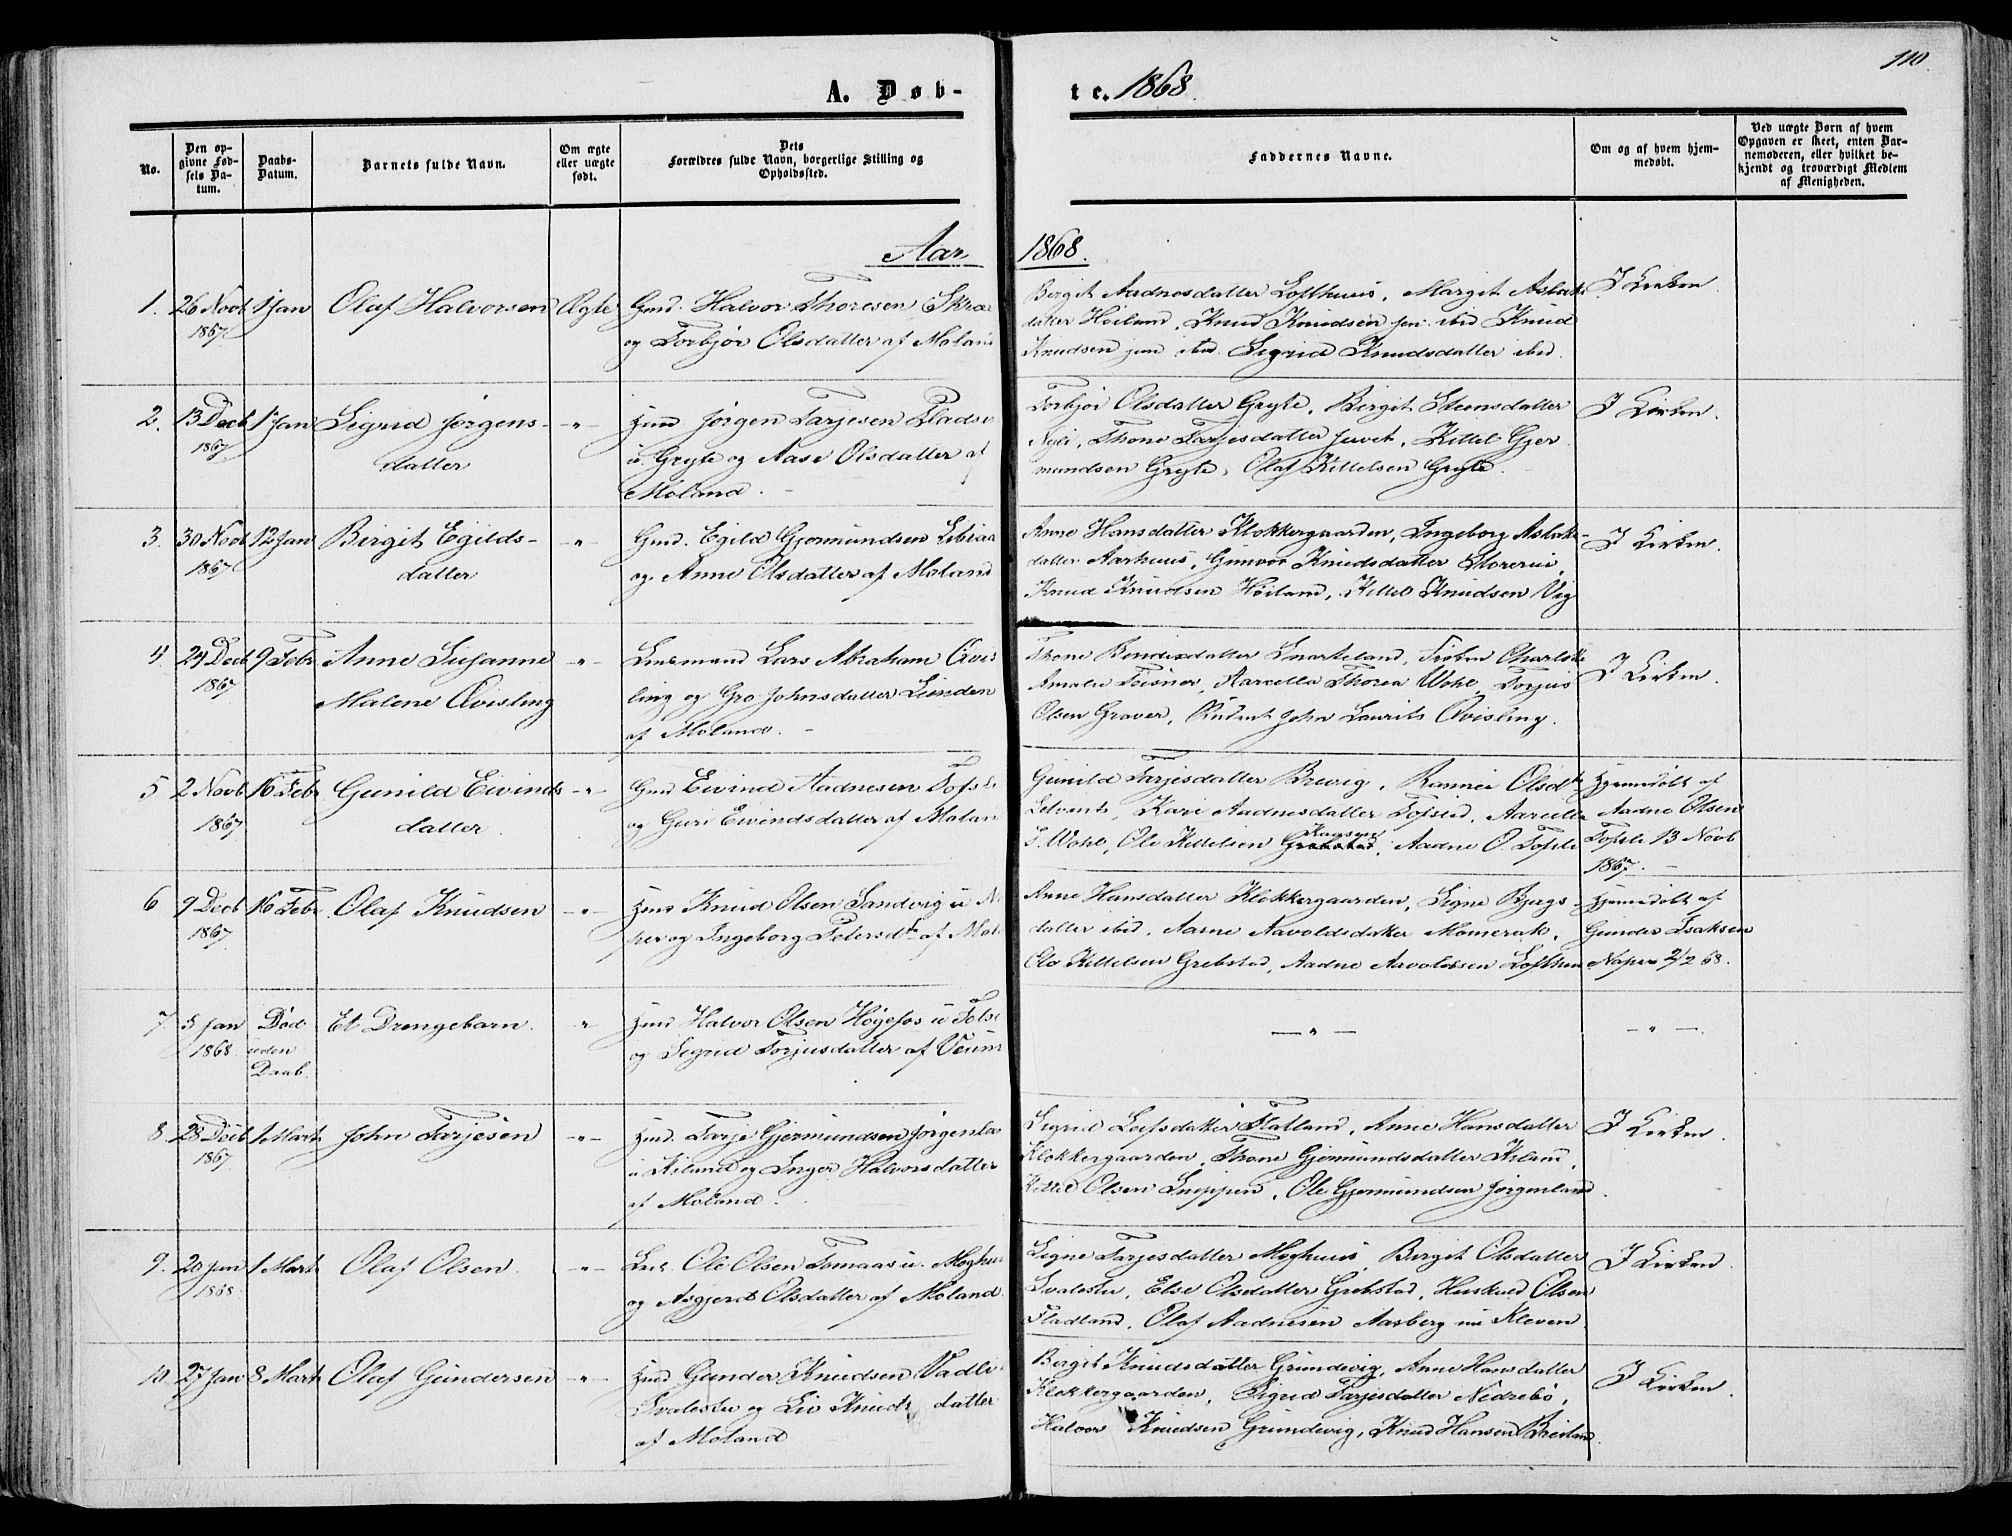 110.
A. Døb-
te. 1868.
No.
Den opgivne Fødsels Datum.
Daabs-Datum.
Barnets fulde Navn.
Om ægte eller uægte født.
Dets Forældres fulde Navn, borgerlige Stilling og Opholdssted.
Faddernes Navne.
Om og af hvem hjemmedøbt.
Ved uægte Børn af hvem Opgaven er skeet, enten Barnemoderen, eller hvilket bekjendt og troværdigt Medlem af Menigheden.
Aar 1868.
1. 26 Novb 1 Jan Olaf Halvorsen Ægte Gmd. Halvor Thoresen
1867. og Torbjør Olsdatter af Moland
Birgit Aadnesdatter Lofthuus, Margit Aslaks
datter Høiland, Knud Knudsen sen ibid Knud
Knudsen jun ibid. Sigrid Knudsdatter ibid.
I Kirken.
2. 13 Decb 1 Jan Sigrid Jørgens- -"- Hmd Jørgen Tarjesen
1867. datter Gryte og Aase Olsdatter af
Moland.
Torbjør Olsdatter Gryte, Birgit Steensdatter
Thone Tarjesdatter Juvet, Kittel Gjer
mundsen Gryte, Olaf Kittelsen Gryte.
I Kirken.
3. 30 Novb 12 Jan Birgit Egilds- -"- Gmd. Egild Gjermundsen
1867 datter og Anne Olsdatter af Moland
Anne Hansdatter Klokkergaarden, Ingeborg Aslaks-
datter Aarhuus, Gunvor Knudsdatter
Knud Knudsen Høiland, Kittel Knudsen Vig
I Kirken.
4. 24 Decb 9 Febr Anne Susanne -"- Lensmand Lars Abraham Qvis
1867 Malene Qvisling ling og Gro Johnsdatter Lunden
af Moland.
Thone Bendixdatter Snarteland, Frøken Charlotte
Amalie Marcella Thorea Wohl, Torjus
Olsen Graver, Student John Laurits Qvisling.
I Kirken.
5 2 Novb 16 Febr Gunild Eivinds -"- Gmd Eivind Aadnesen
1867. datter. og Guro Eivindsdatter af Molan
Gunild Tarjesdatter Brevig, Rannei Olsd
Kari Aadnesdatter Tofsted, Marcella
T. Wohl, Ole Kittelsen Grebstad, Aadne O. Tofste
Hjemmedøbt af
Aadne Olsen
Tofste 13 Novb
1867.
6 9 Decb 16 Febr Olaf Knudsen -"- Hmd Knud Olsen Sandvig u/ Na
1867. per og Ingeborg Petersdt af Mol
Anne Hansdatter Klokkergaarden, Signe Bjergs-
datter ibid. Aasne Aavoldsdatter Momerak,
Ole Kittelsen Grebstad, Aadne Aavoldsen Lofthuus
Hjemmedøbt af
Gunder Isaksen
Naper 2/2 68.
7. 5 Jan Død Et Drengebarn. " Hmd Halvor Olsen Høgefos u/
1868. uden og Sigrid Torjusdatter af Veum
Daab.
-"-
-"-
8. 28 Decb 1 Mart John Tarjesen -"- Hmd. Tarje Gjermundsen Jørgenla
1867 og Inger Halvorsdatter
af Moland.
Sigrid Leifsdatter Flatland, Anne Hansdatter
Klokkergaarden, Thone Gjermundsdatter
Kittel Olsen Snippen, Ole Gjermundsen Jørgenland
I Kirken.
9. 20 Jan 1 Mart Olaf Olsen. -"- Ole Olsen Tomaas u. Moghu
1868. og Asgjerd Olsdatter af Moland.
Signe Tarjesdatter Moghuus, Birgit Olsdatter
Svalestu, Else Olsdatter Grebstad, Huskuld Olsen
Fladland, Olaf Aadnesen Aasberg nu Kleven.
I Kirken.
10. 27 Jan 8 Mart Olaf Gundersen -"- Hmd Gunder Knudsen Vadli
Svalestu og Liv Knuds datter
af Moland
Birgit Knudsdatter Grundvig, Anne Hansdatter
Klokkergaarden, Sigrid Tarjesdatter Nedrebø,
Halvor Knudsen Grundevig, Knud Hansen
I Kirken.